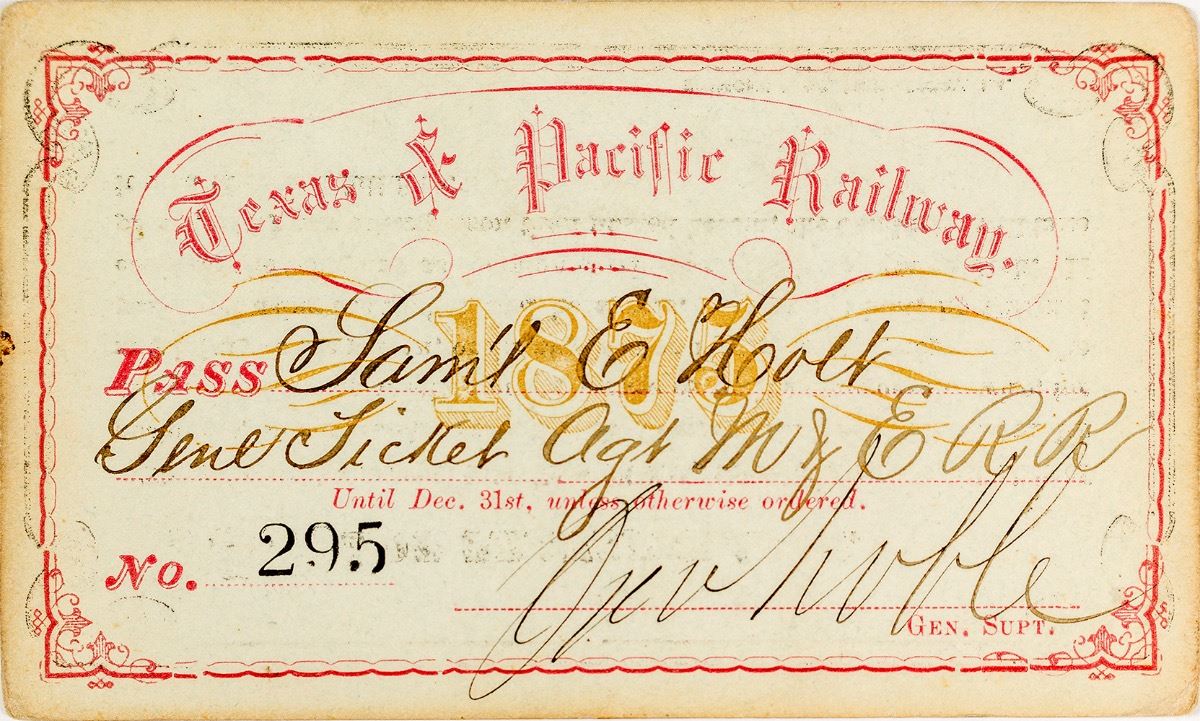 Texas & Pacific Railway.
1875
Pass Saml E Holt
Genl Ticket Agt M & E R R
Until Dec. 31st, unless otherwise ordered.
No. 295
Geo Noble
Gen. Supt.